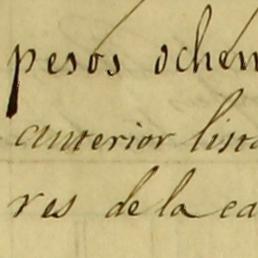 pesos ochen
anterior lista
res de la ca